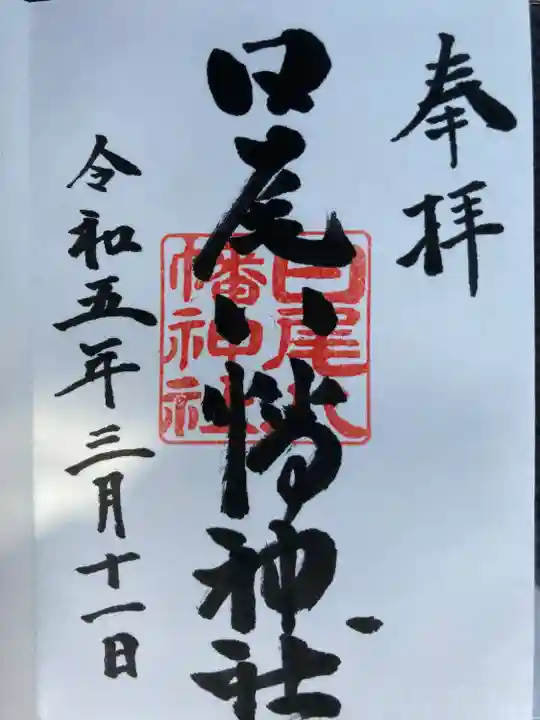 奉拝
臼尾八幡神社
臼尾八幡神社
令和五年三月十一日